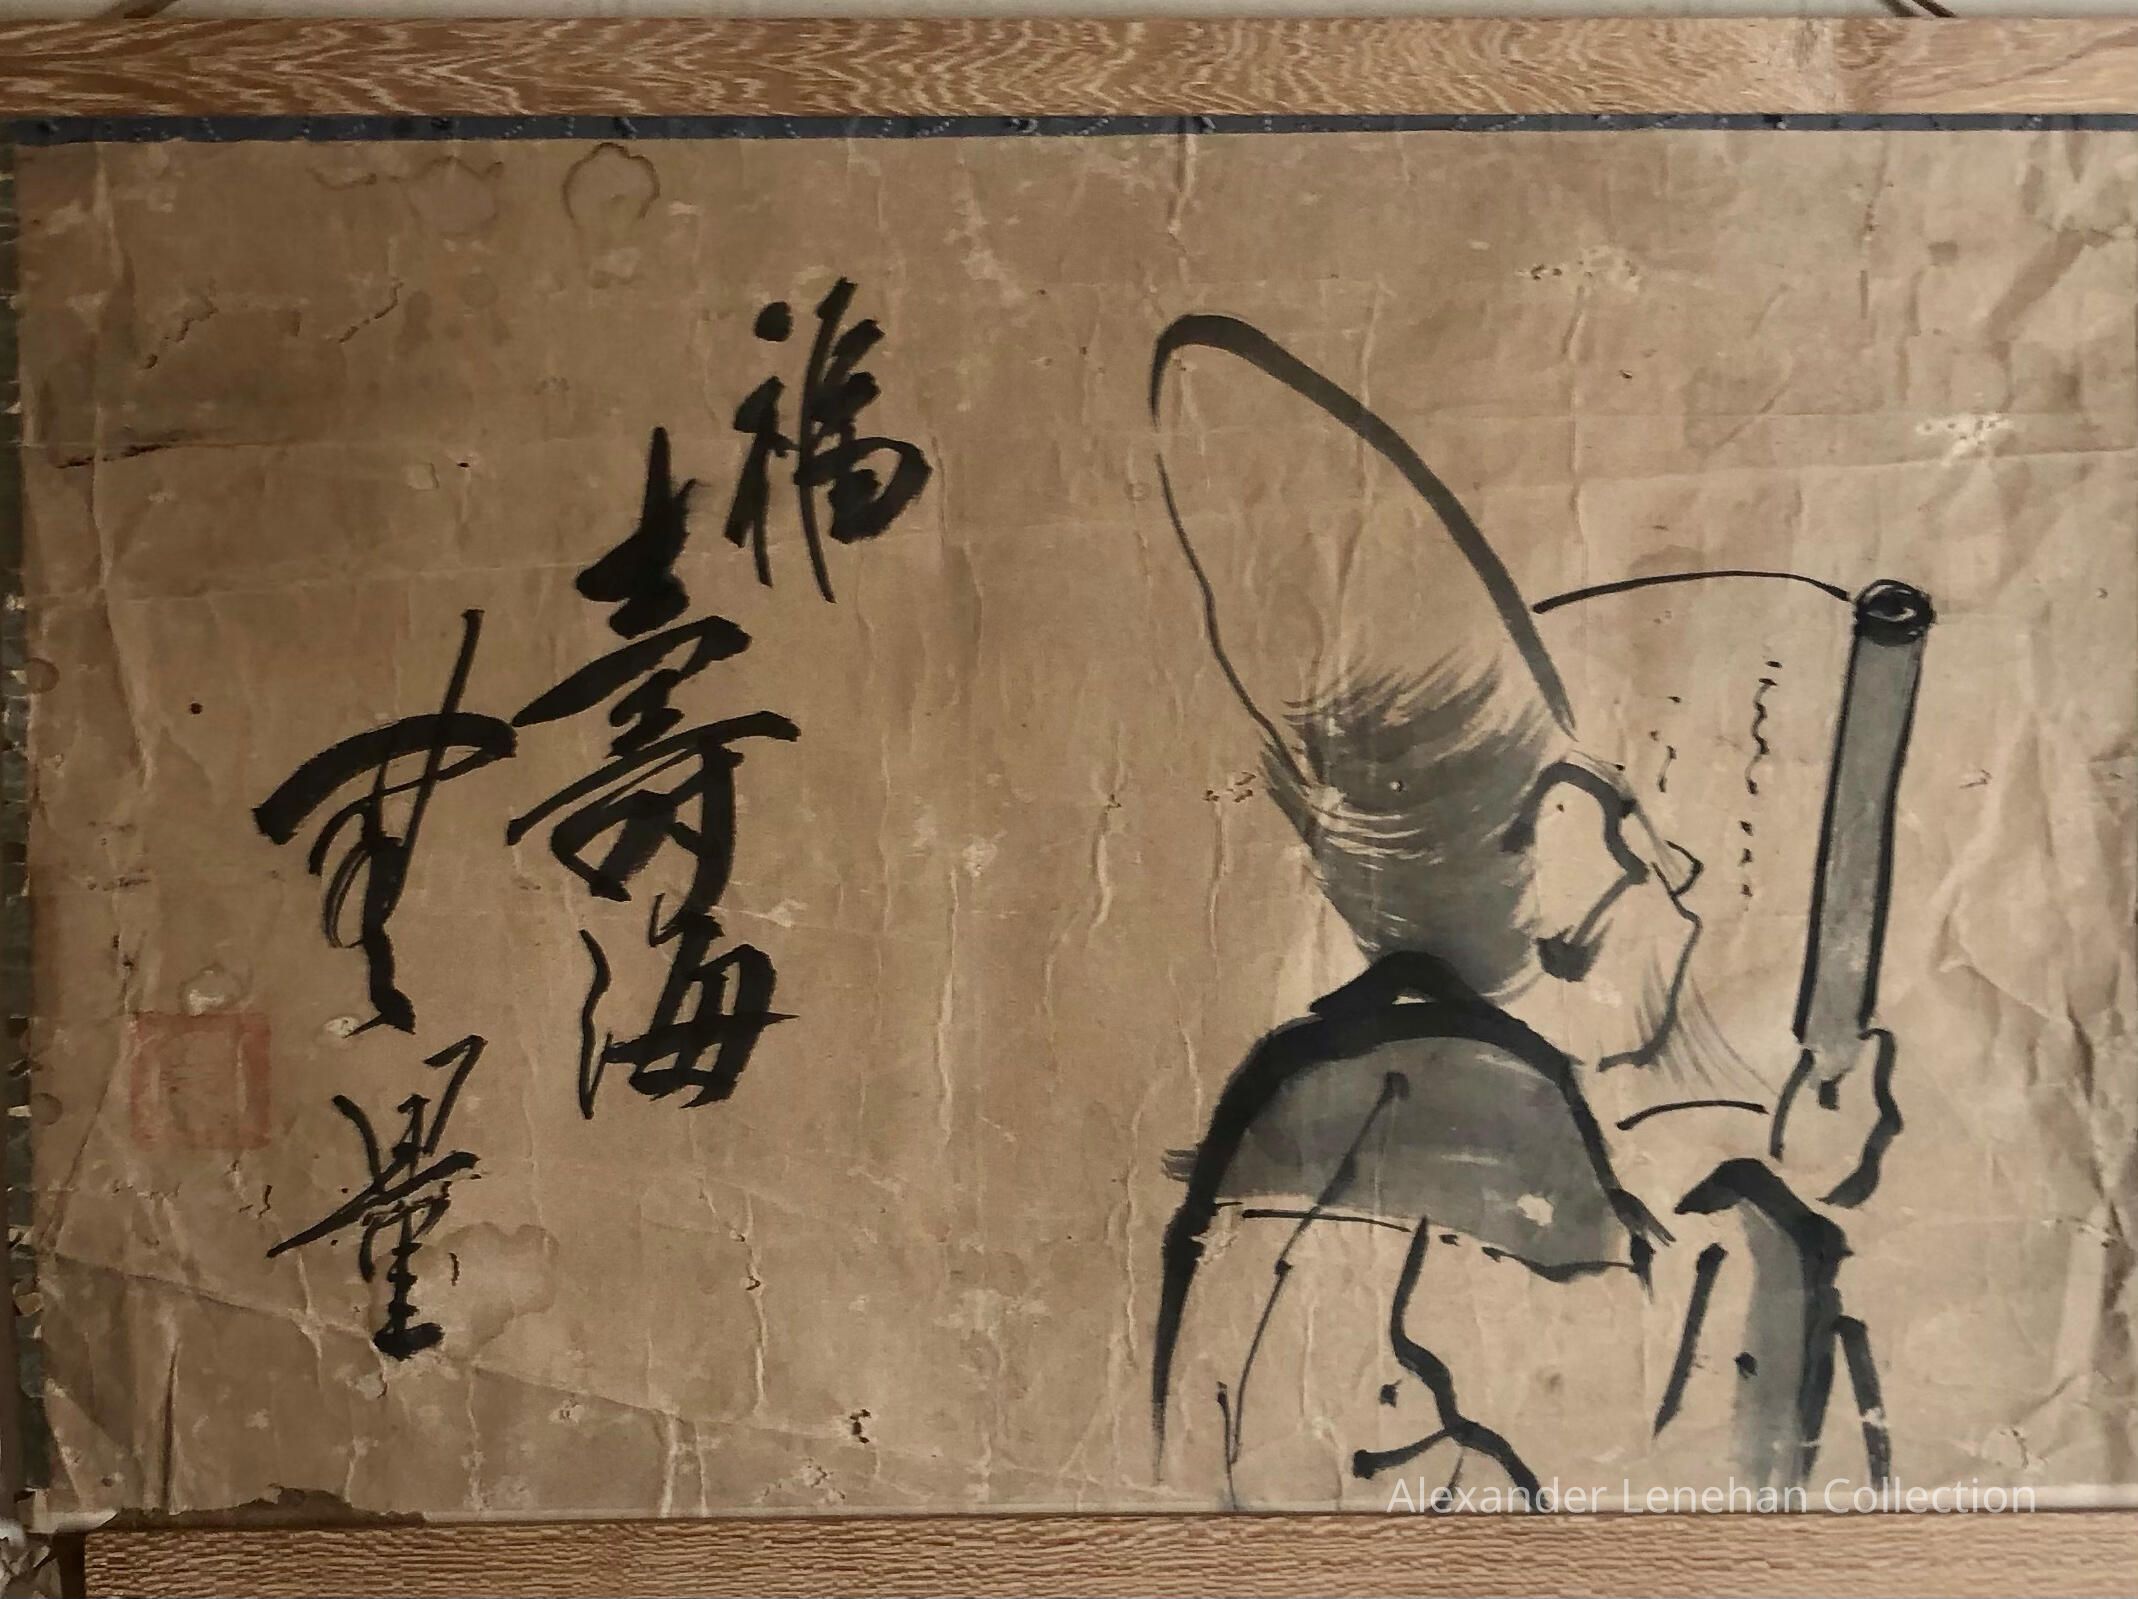 福
壽海
無量
Alexander Lenehan Collection